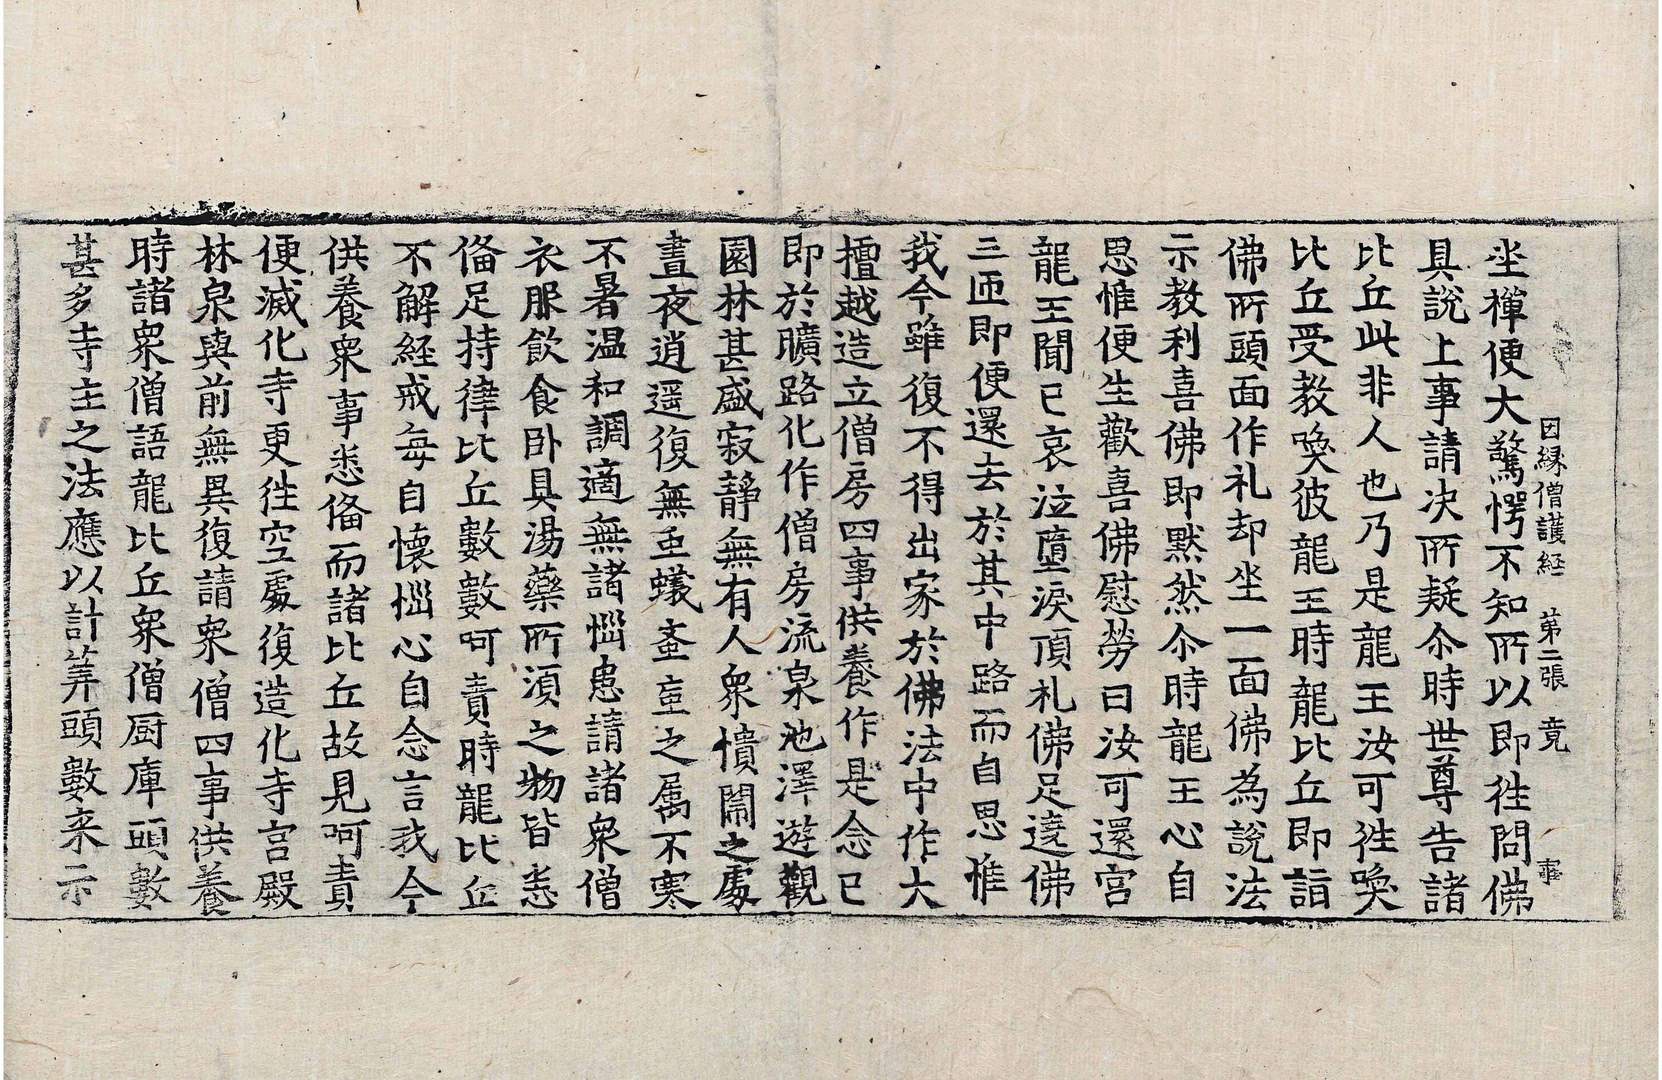 因縁僧護経 第二張 竟 寉
坐禪便大驚愕不知所以即徃問佛
具說上事請决所疑尒時世尊告諸
比丘此非人也乃是龍王汝可徃喚
比丘受教喚彼龍王時龍比丘即詣
佛所頭面作礼却坐一面佛為說法
示教利喜佛即黙然尒時龍王心自
思惟便生歡喜佛慰勞曰汝可還宮
龍王聞已哀泣墮淚頂礼佛足遶佛
三匝即便還去於其中路而自思惟
我今雖復不得出家於佛法中作大
檀越造立僧房四事供養作是念已
即於曠路化作僧房流泉池澤遊觀
園林甚盛寂靜無有人衆憒閙之處
晝夜逍遥復無䖝蟻蚤䖝之属不寒
不暑温和調適無諸惱患請諸衆僧
衣服飲食卧具湯藥所湏之物皆悉
俻足持律比丘數數呵責時龍比丘
不解經戒每自懷惱心自念言我今
供養衆事悉俻而諸比丘故見呵責
便滅化寺更徃空處復造化寺宮殿
林泉與前無異復請衆僧四事供養
時諸衆僧語龍比丘衆僧厨庫頭數
甚多寺主之法應以計筭頭數来示